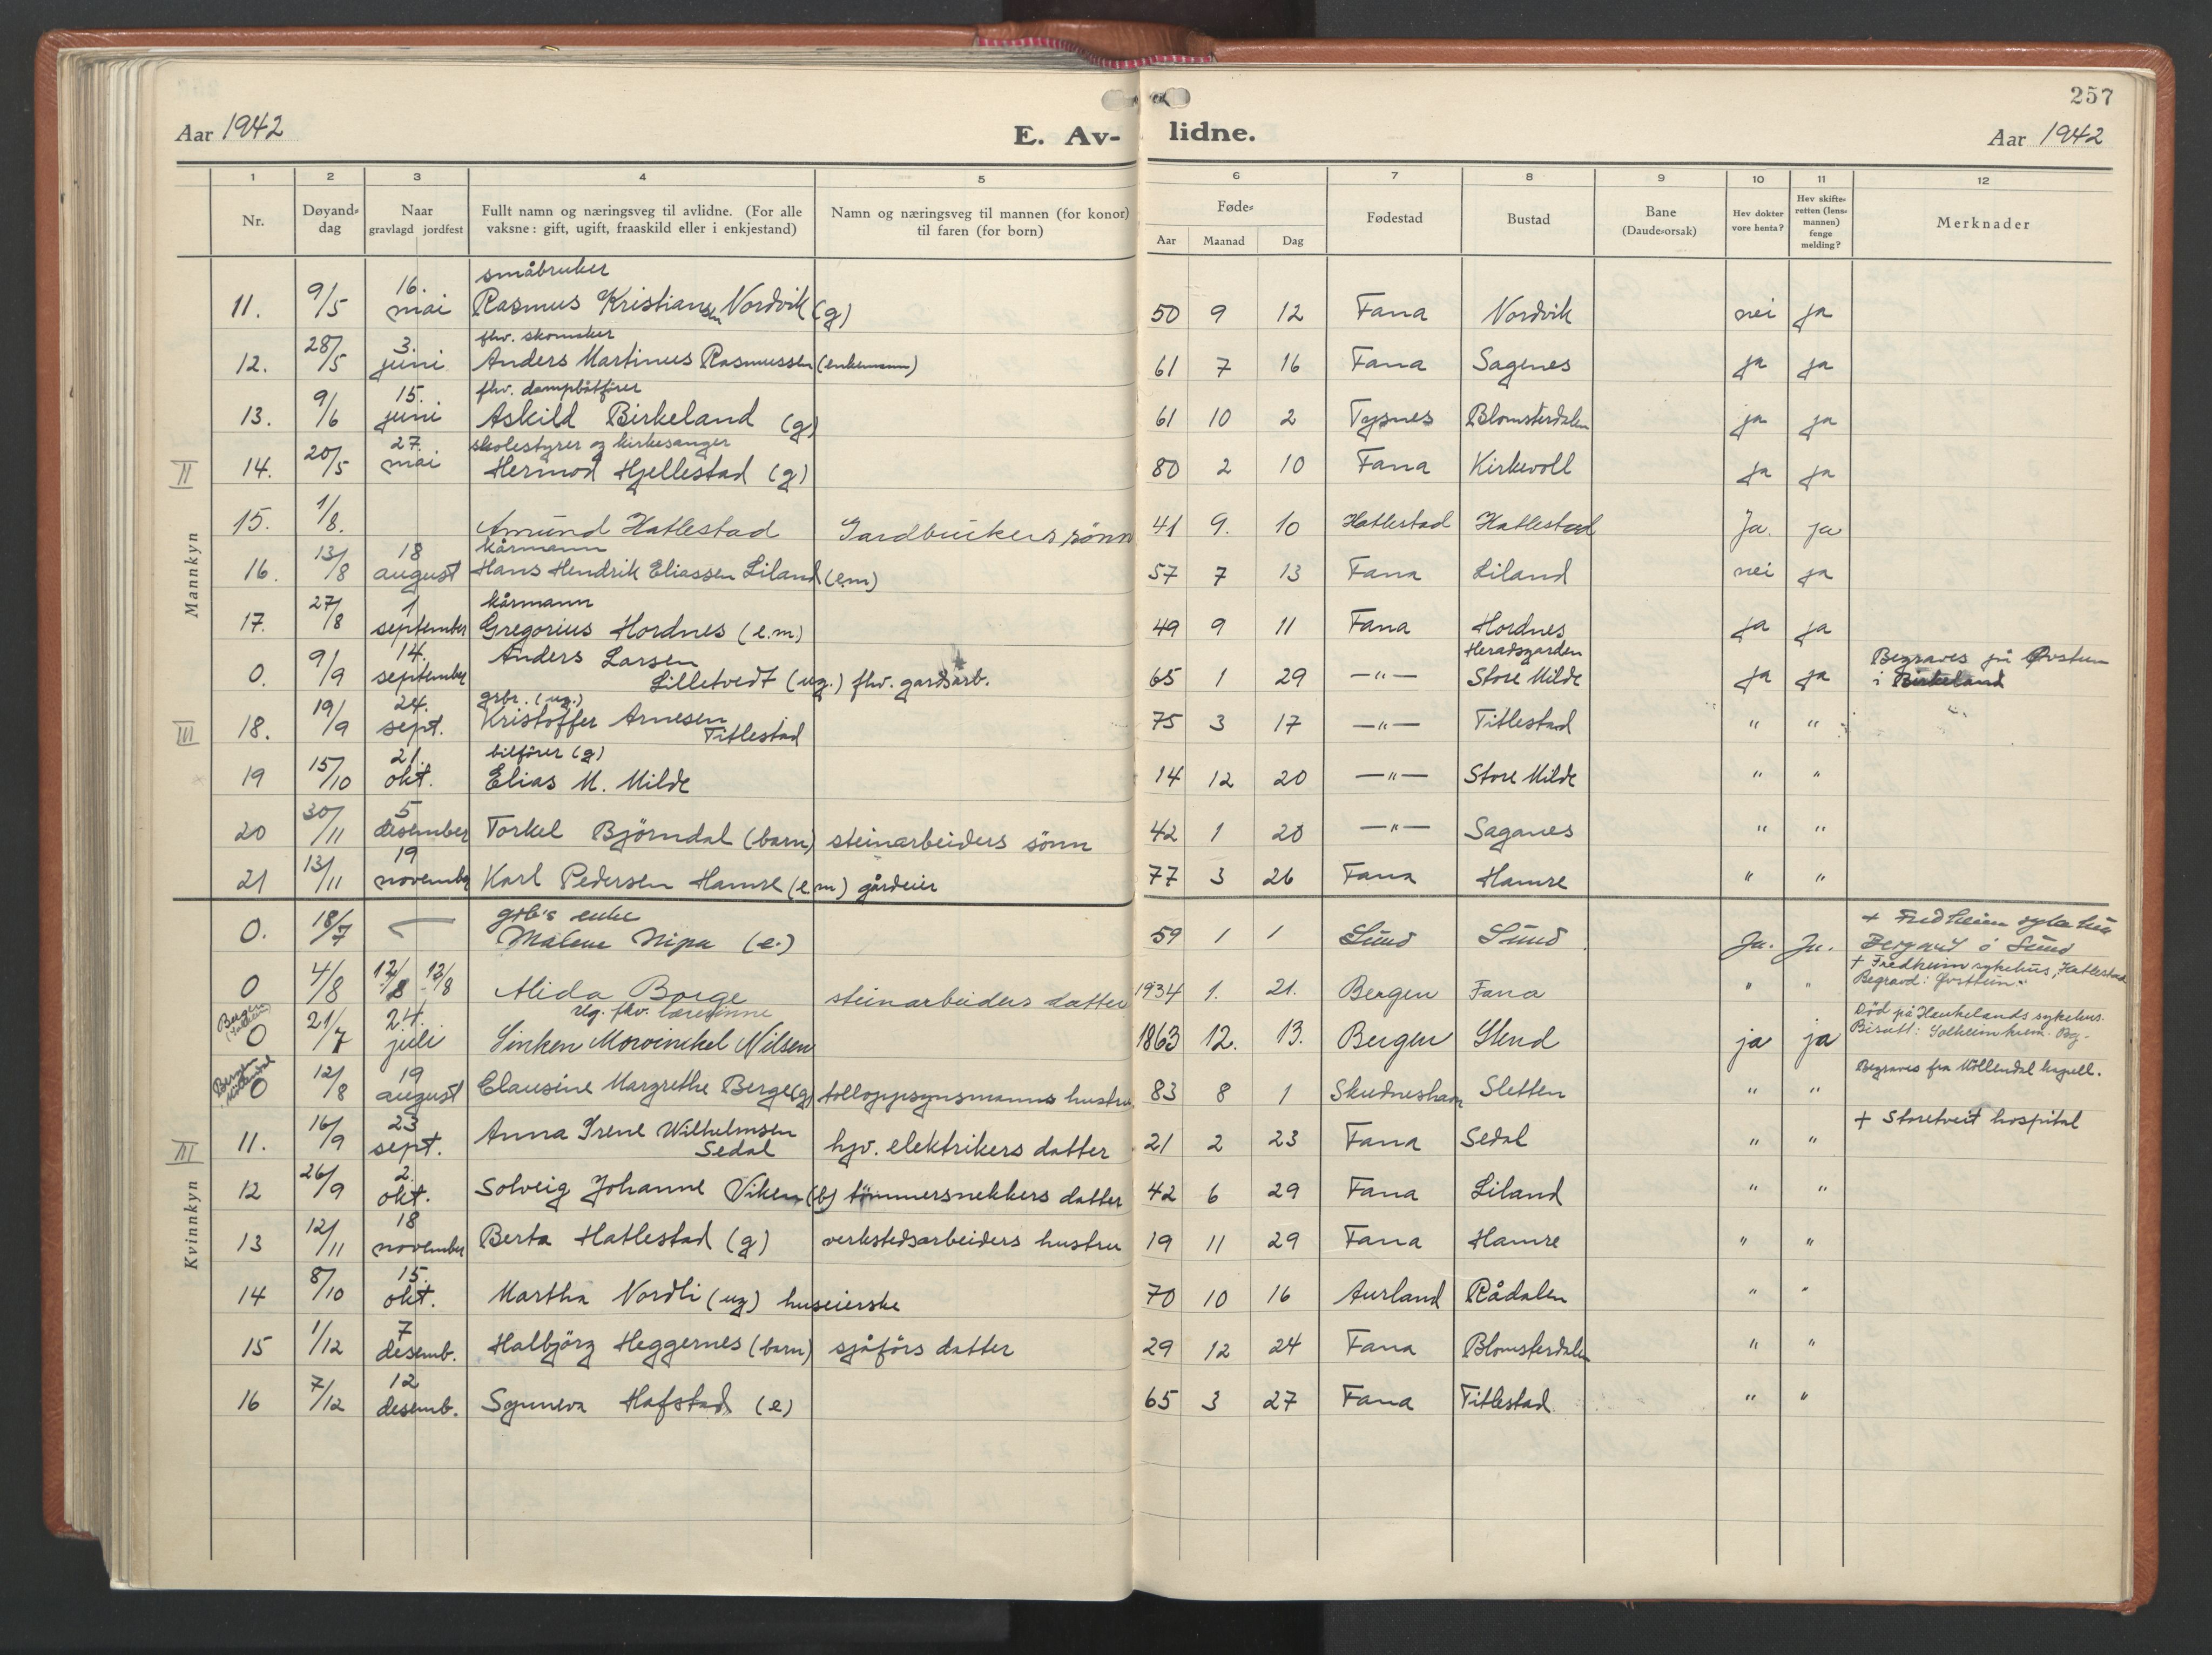 257
Aar 1942
E. Av-
lidne.
Aar 1942
1 2 3 4 5 6 7 8 9 10 11 12
Nr.
Døyand-
dag
Naar
gravlagd jordfest
Fullt namn og næringsveg til avlidne. (For alle
vaksne: gift, ugift, fraaskild eller i enkjestand)
Namn og næringsveg til mannen (for konor)
til faren (for born)
Føde-
Aar Maanad Dag
Fødestad
Bustad
Bane
(Daude-orsak)
Hev dokter
vore henta?
Hev skifte-
retten (lens-
mannen)
fenge
melding?
Merknader
Mannkyn
småbruker
11. 9/5 16. mai Rasmus Kristiansen Nordvik (g) 50 9 12 Fana Nordvik nei ja
fhv. skomaker
12. 28/5 3. juni Anders Martinus Rasmussen (enkemann) 61 7 16 Fana Sagenes ja ja
fhv. dampbåtfører
13. 9/6 15. juni Askild Birkeland (g) 61 10 2 Tysnes Blomsterdalen ja ja
skolestyrer og kirkesanger
II 14. 20/5 27. mai Hermod Hjellestad (g) 80 2 10 Fana Kirkevoll ja ja
15. 1/8. Amund Hatlestad Gardbrukers sönn 41 9. 10 Hatlestad Hatlestad Ja. ja
kårmann
16. 13/8 18 august Hans Hendrik Eliassen Liland (em) 57 7 13 Fana Liland nei ja
kårmann
17. 27/8 1 september Gregorius Hordnes (e.m.) 49 9 11 Fana Hordnes ja ja
0. 9/9 14. september Anders Larsen
Lilletvedt (ug.) fhv. gardsarb. 65 1 29 —"— Heradsgarden
Store Milde ja ja Begraves på Øvstun
i Birkeland
grbr. (ug.)
III 18. 19/9 24. sept. Kristoffer Arnesen
Titlestad 75 3 17 —"— Titlestad " "
bilförer (g)
19 15/10 21. okt. Elias M. Milde 14 12 20 —"— Store Milde " "
20 30/11 5 desember Torkel Björndal (barn) steinarbeiders sönn 42 1 20 —"— Saganes " "
21 13/11 19 november Karl Pedersen Hamre (e.m) gårdeier 77 3 26 Fana Hamre " "
Kvinnkyn
grb's enke
0. 18/7 — Malene Nipa (e.) 59 1 1 Sund Sund Ja. Ja. + Fredheim
Begravd i Sund
0 4/8 12/8 12/8 Alida Borge steinarbeiders datter 1934 1. 21. Bergen Fana " " + Fredheim sykehus, Hatlestad
Begravd: Øvsttun.
ug. fhv. lærerinne
Bergen
0 21/7 24. juli Sinken Mowinckel Nilsen 1863 12. 13. Bergen Stend ja ja Död på Haukelands sykehus.
Bisatt: Solheim krem. Bg.
Bergen
Möllendal
0 12/8 19 august Clausine Margrethe Berge (g) tolloppsynsmanns hustru. 83 8 1 Skudneshavn Sletten " " Begraves fra Möllendal kapell.
III 11. 16/9 23 sept. Anna Irene Wilhelmsen
Sedal hjv. elektrikers datter 21 2 23 Fana Sedal " " + Storetveit hospital
12 26/9 2. okt. Solveig Johanne Viken (b) tömmersnekkers datter 42 6 29 Fana Liland " "
13 12/11 18 november Berta Hatlestad (g) verkstedsarbeiders hustru 19 11 29 Fana Hamre " "
14 8/10 15. okt. Martha Nordli (ug) huseierske 70 10 16 Aurland Rådalen " "
15 1/12 7 desemb. Halbjörg Heggernes (barn) sjåförs datter 29 12 24 Fana Blomsterdalen " "
16 7/12 12 desemb. Synneva Hafstad (e) 65 3 27 Fana Titlestad " "